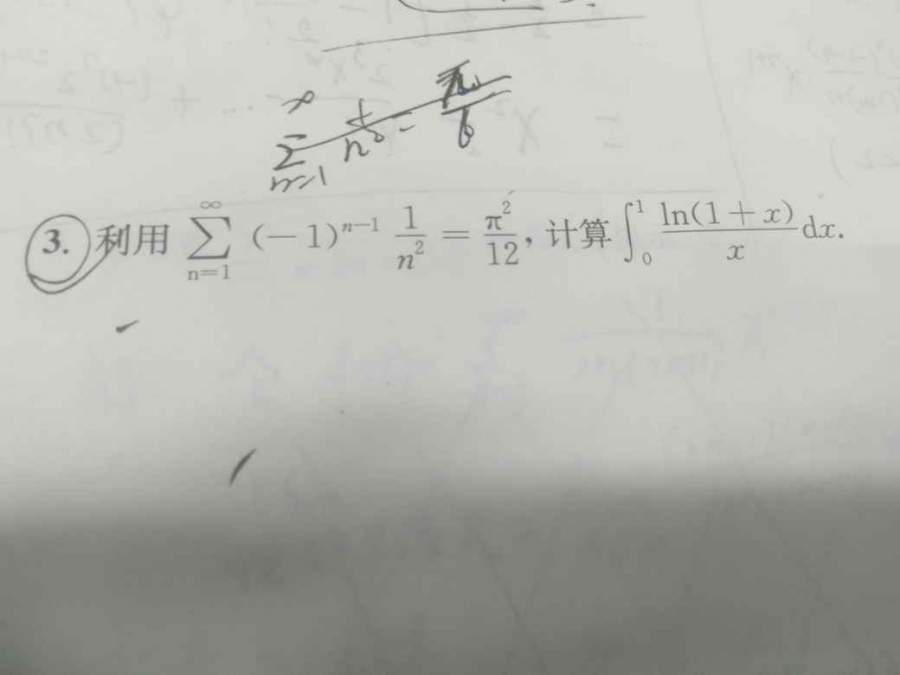 ∞
Σ 1/n² = π²/6
n=1
3. 利用 $\sum_{n=1}^{\infty} (-1)^{n-1} \frac{1}{n^2} = \frac{\pi^2}{12}$, 计算 $\int_0^1 \frac{\ln(1+x)}{x} dx$.